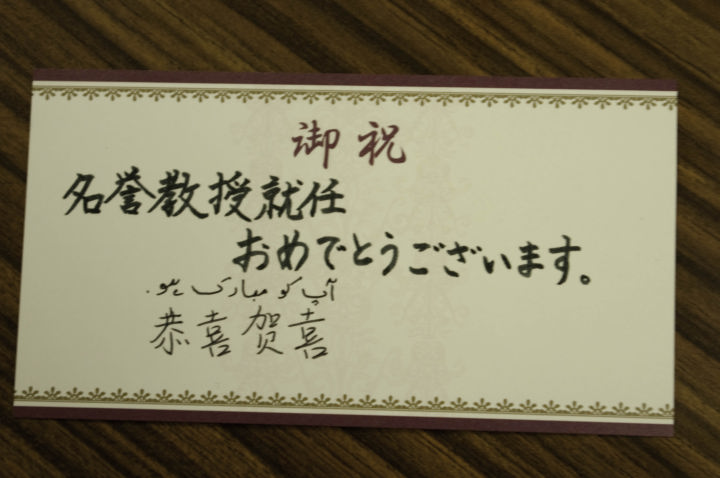 御祝
名誉教授就任
おめでとうございます。
آپ کو مبارک ہو۔
恭喜贺喜